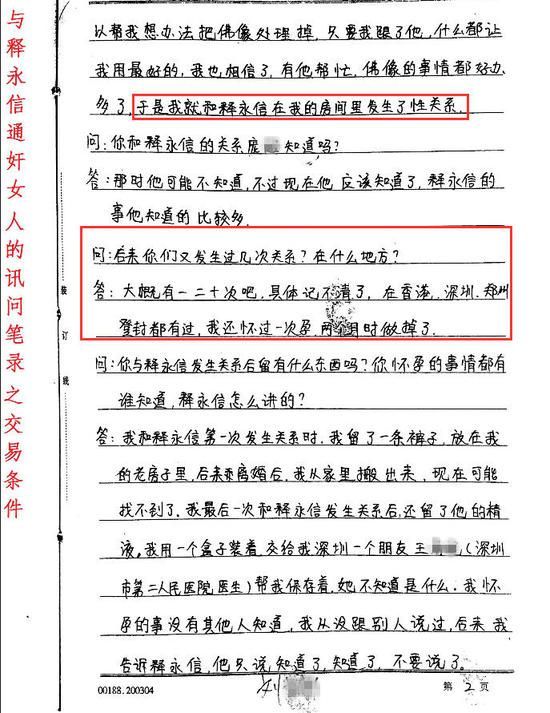 与释永信通奸女人的讯问笔录之交易条件
装
订
线
以帮我想办法把佛像处理掉,只要我跟了他,什么都让
我用最好的,我也相信了,有他帮忙,佛像的事情都好办
多了,于是我就和释永信在我的房间里发生了性关系.
问:你和释永信的关系庞 知道吗?
答:那时他可能不知道,不过现在他应该知道了,释永信的
事他知道的比较多.
问:后来你们又发生过几次关系?在什么地方?
答:大概有一二十次吧,具体记不清了,在香港,深圳,郑州
登封都有过,我还怀过一次孕,两个月时做掉了.
问:你与释永信发生关系后留有什么东西吗?你怀孕的事情都有
谁知道,释永信怎么讲的?
答:我和释永信第一次发生关系时,我留了一条裤子,放在我
的老房子里,后来 离婚后,我从家里搬出来,现在可能
找不到了.我最后一次和释永信发生关系后,还留了他的精
液,我用一个盒子装着,交给我深圳一个朋友王 (深圳
市第二人民医院医生)帮我保存着,她不知道是什么.我怀
孕的事没有其他人知道,我从没跟别人说过,后来我
告诉释永信,他只说知道了,知道了,不要说了。
00188.200304 刘 第 2 页